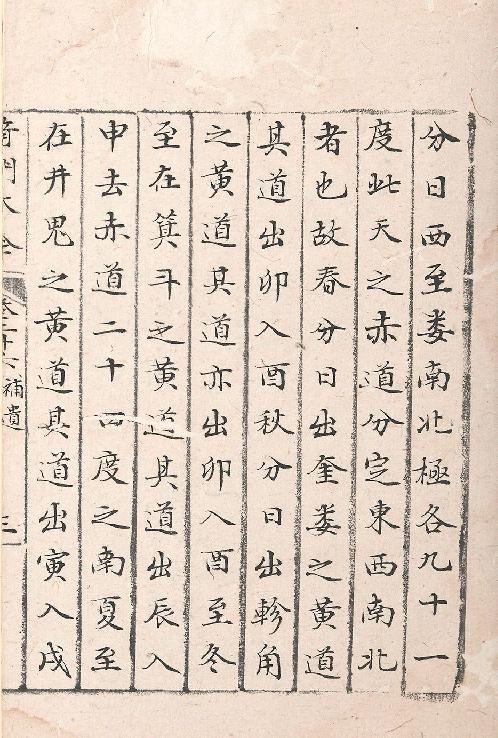 分日西至婁南北極各九十一
度此天之赤道分定東西南北
者也故春分日出奎婁之黄道
其道出卯入酉秋分日出軫角
之黄道其道亦出卯入酉至冬
至在箕斗之黄道其道出辰入
申去赤道二十四度之南夏至
在井鬼之黄道其道出寅入戌
奇門大全 卷二十六 補遺 三